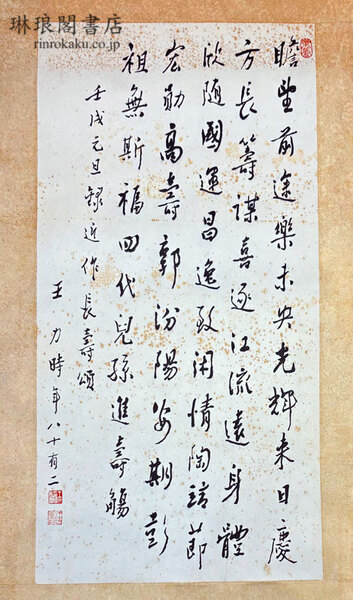 琳琅閣書店
rinrokaku.co.jp
瞻望前途樂未央光輝來日慶
方長籌謀喜逐江流遠身體
欣隨國運昌逸致閑情陶靖節
宏勛高壽郭汾陽安期彭
祖無斯福四代兒孫進壽觴
壬戌元旦錄近作長壽頌
王力時年八十有二